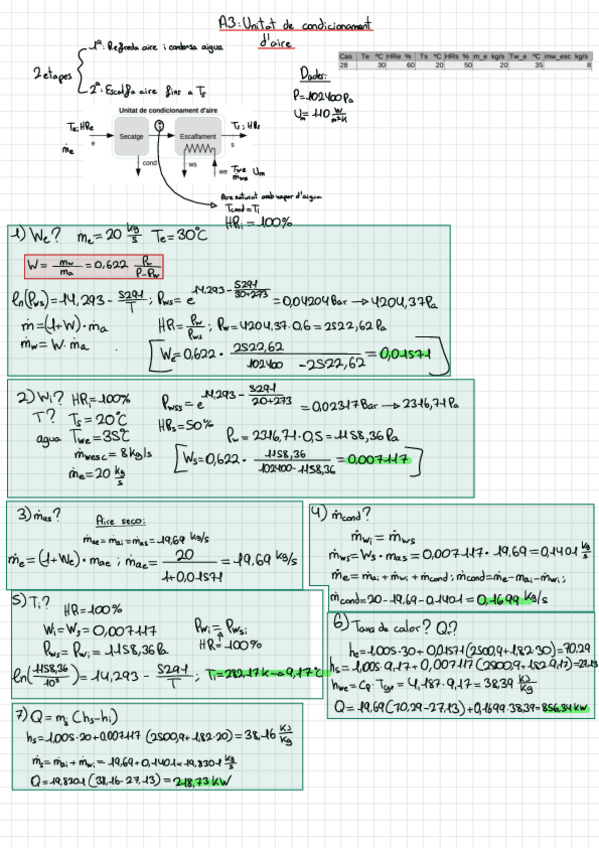 A3: Unitat de condicionament
d'aire
1ª: Refreda aire i condensa aigua
2 etapes
2ª: Escalfa aire fins a Ts
Cas Te ºC HRe % Ts ºC HRs % m_e kg/s Tw_e ºC mw_esc kg/s
28 30 60 20 50 20 35 8
Dades:
P=102400 Pa
Um=110 W/m²K
Unitat de condicionament d'aire
Te; HRe
ṁe
e
Secatge
i
Escalfament
Ts; HRs
s
cond
ws
we
Twe
ṁwe
Um
Aire saturat amb vapor d'aigua
Tcond=Ti
HRi=100%
1) We? ṁe=20 kg/s Te=30ºC
W= mw/ma =0,622 Pw/P-Pw
ln(Pws)=14,293- 5291/T ; Pws= e^14,293- 5291/30+273 =0,04204 Bar → 4204,37 Pa
ṁ=(1+W)·ṁa HR= Pw/Pws ; Pw=4204,37·0,6=2522,62 Pa
ṁw=W·ṁa
We=0,622· 2522,62/102400-2522,62 =0,01571
2) Wi? HRi=100% Pwss=e^14,293- 5291/20+273 =0,02317 Bar → 2316,71 Pa
T? Ts=20ºC HRs=50%
agua Twe=35ºC Pw=2316,71·0,5=1158,36 Pa
ṁwesc=8 kg/s
ṁe=20 kg/s
Ws=0,622· 1158,36/102400-1158,36 =0,007117
3) ṁas? Aire seco:
ṁae=ṁai=ṁas=19,69 kg/s
ṁe=(1+We)·ṁae ; ṁae= 20/1+0,01571 =19,69 kg/s
4) ṁcond?
ṁwi=ṁws
ṁws=Ws·mas=0,007117·19,69=0,1401 kg/s
ṁe=ṁai+ṁwi+ṁcond; ṁcond=ṁe-mai-ṁwi;
ṁcond=20-19,69-0,1401=0,1699 kg/s
5) Ti? HR=100%
Wi=Ws=0,007117 Pwi=Pwsi
Pws=Pwi=1158,36 Pa HR=100%
ln(1158,36/10⁵)=14,293- 5291/T ; Ti=282,17 K → 9,17ºC
6) Taxa de calor? Q?
he=1,005·30+0,01571(2500,9+1,82·30)=70,29
hs=1,005·9,17+0,007117(2500,9+1,82·9,17)=27,13
hwe=Cp·T =4,187·9,17=38,39 KJ/Kg
Q=19,69(70,29-27,13)+0,1699·38,39=856,34 kW
7) Q=ṁs(hs-hi)
hs=1,005·20+0,007117(2500,9+1,82·20)=38,16 KJ/Kg
ṁs=ṁai+ṁwi=19,69+0,1401=19,8301 kg/s
Q=19,8301(38,16-27,13)=218,73 KW